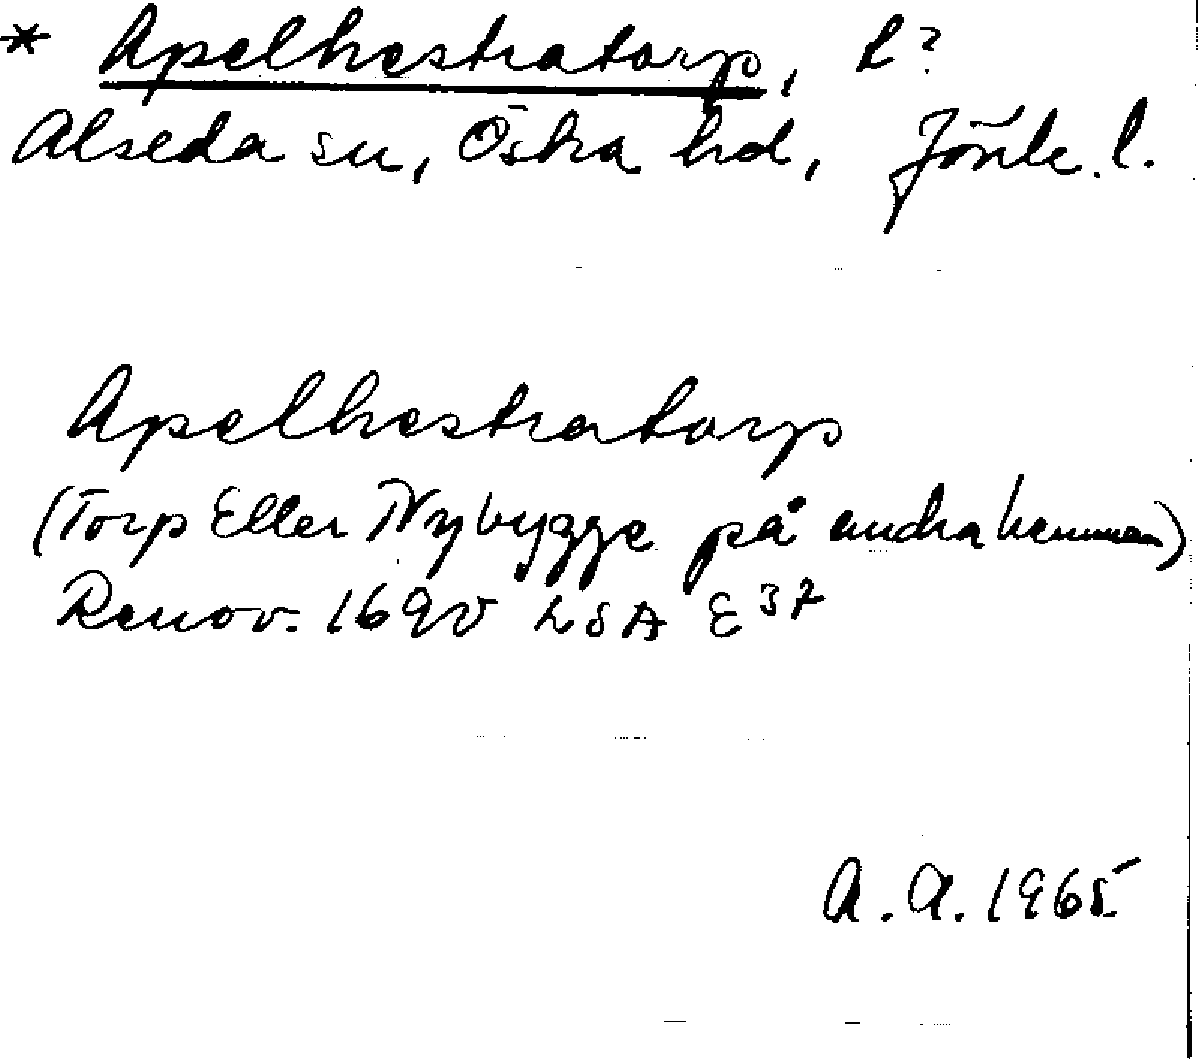 * Apelhestratorp, l?
Alseda sn, Östra hd, Jönk. l.
Apelhestratorp
(Torp Eller Nybygge på andra hemman)
Renov. 1690 LSA E 37
A. A. 1965